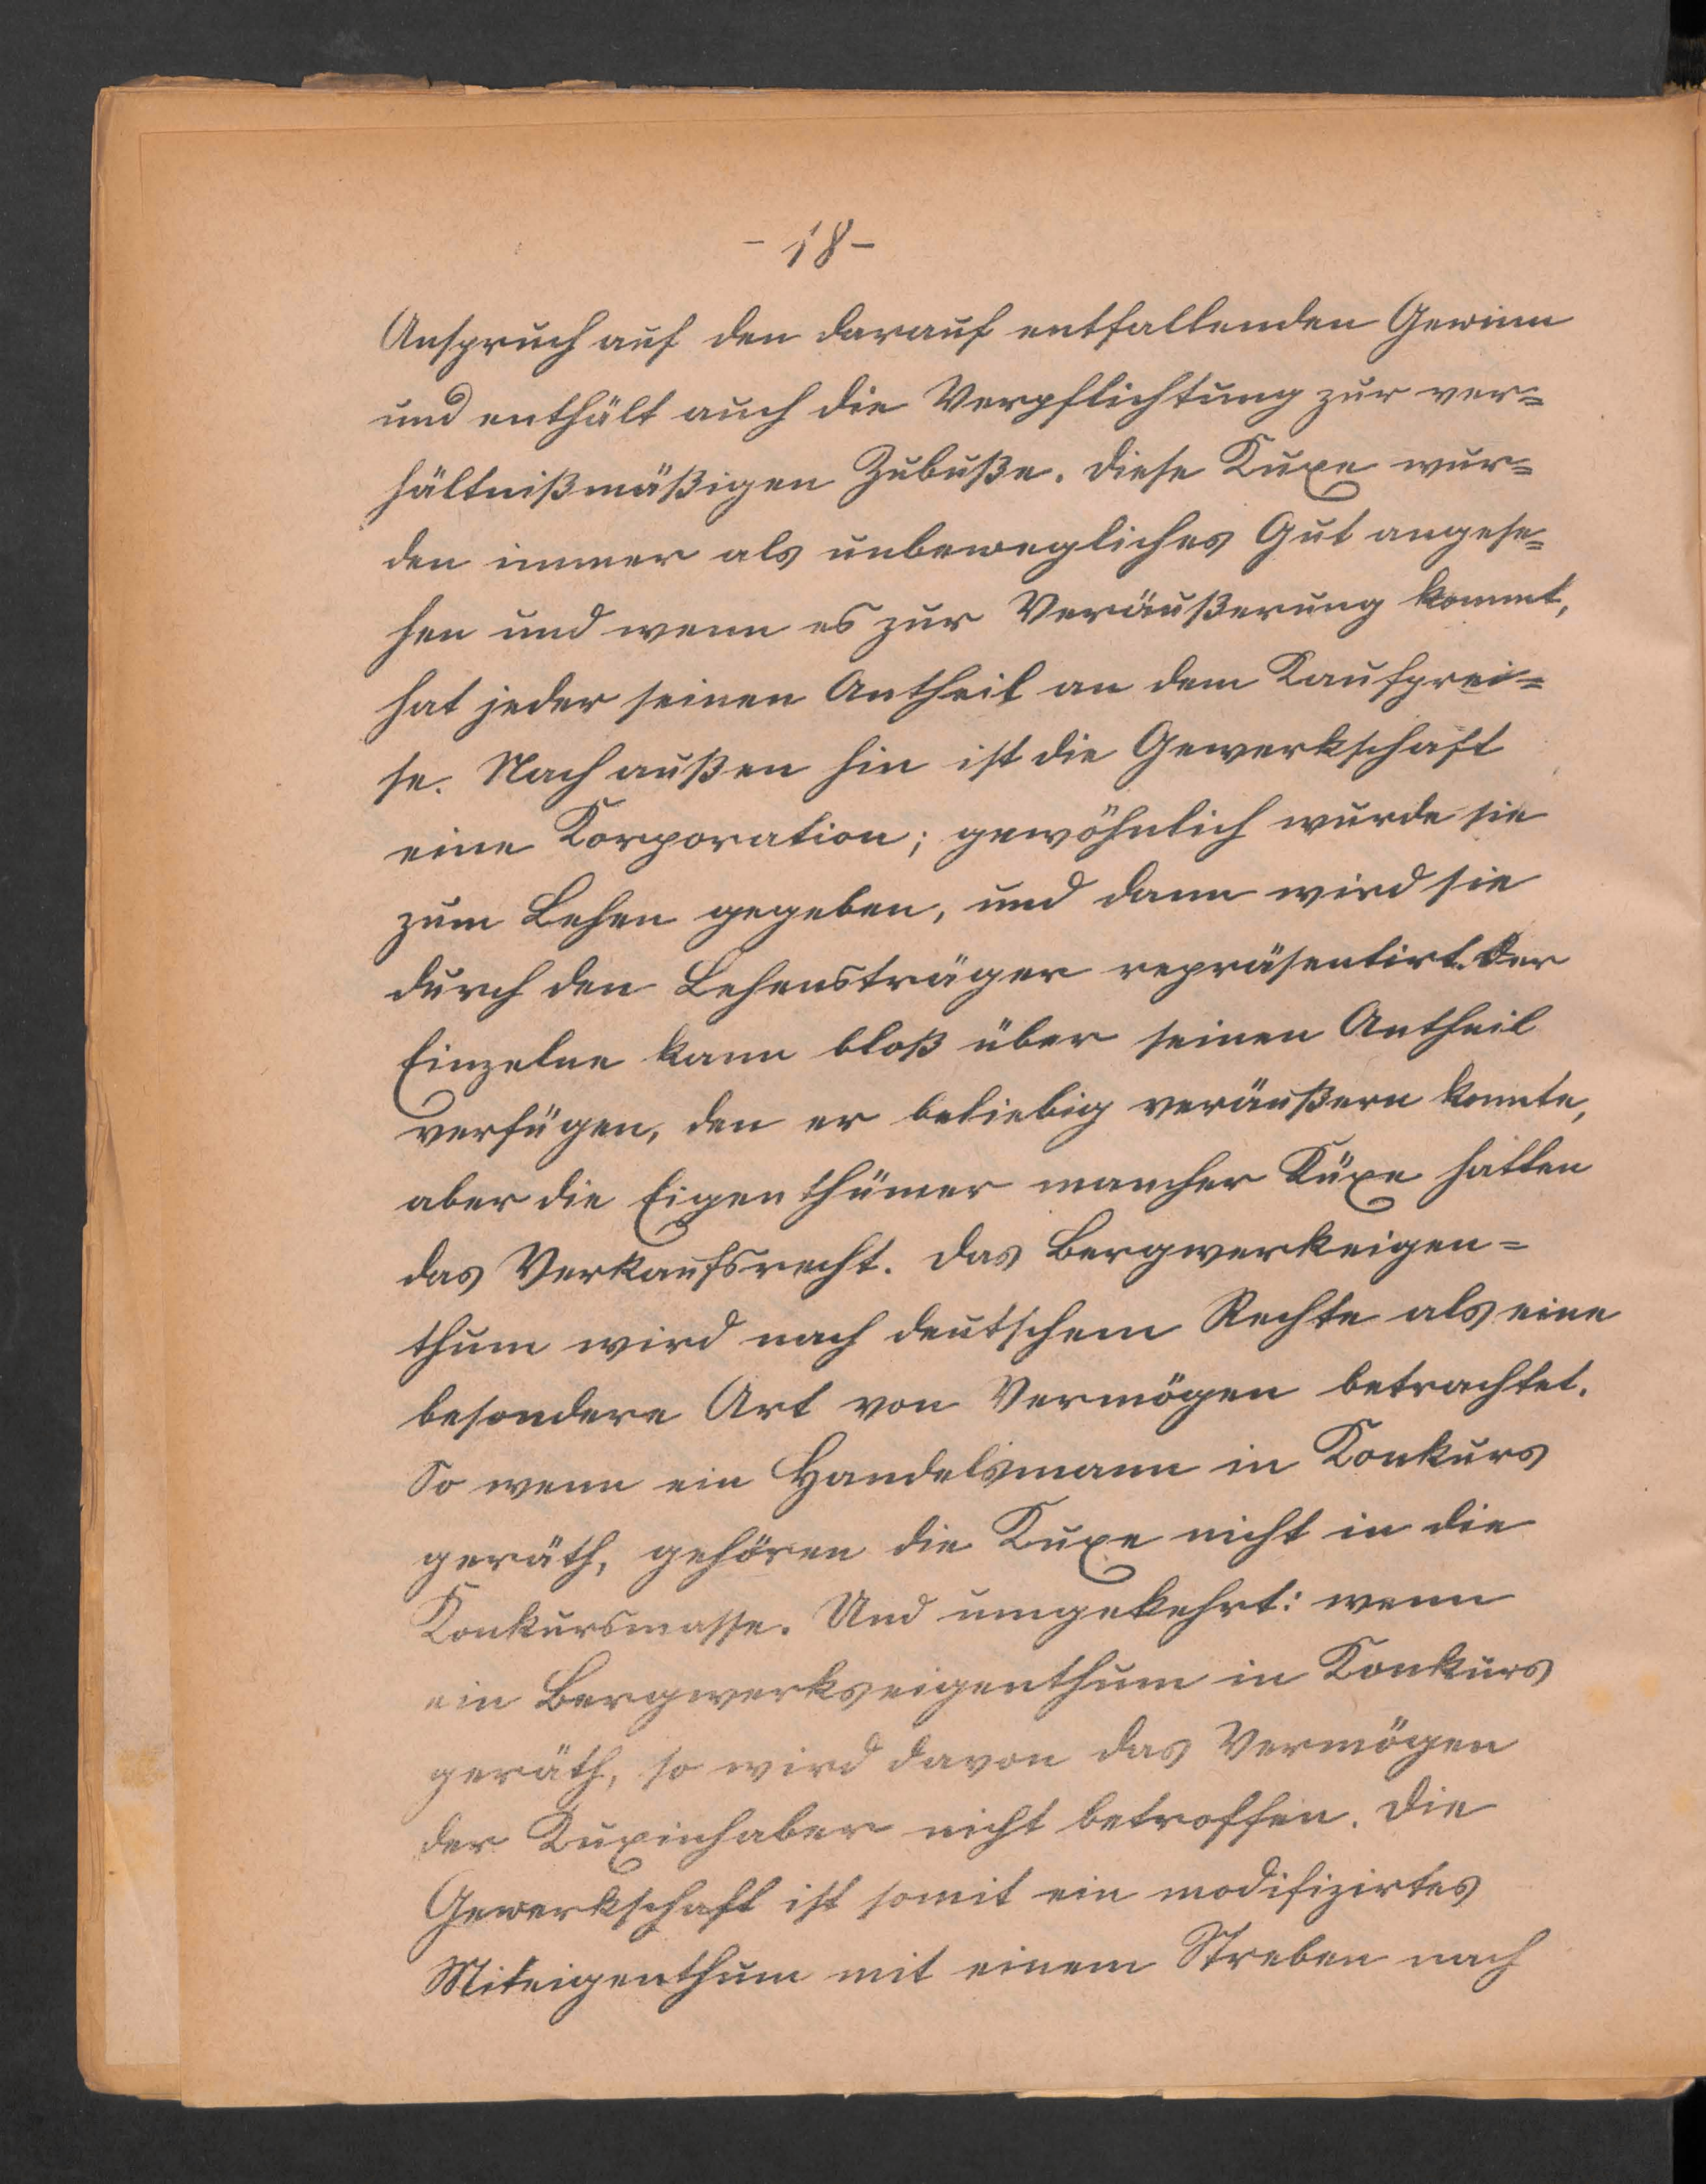 - 18 -
Anspruch auf den darauf entfallenden Gewinn
und enthält auch die Verpflichtung zur ver=
hältnißmäßigen Zubuße. Diese Kuxe wur=
den immer als unbewegliches Gut angese=
hen und wenn es zur Veräußerung kommt,
hat jeder seinen Antheil an dem Kaufprei=
se. Nach außen hin ist die Gewerkschaft
eine Korporation; gewöhnlich wurde sie
zum Lehen gegeben, und dann wird sie
durch den Lehensträger repräsentirt. Der
Einzelne kann bloß über seinen Antheil
verfügen, den er beliebig veräußern konnte,
aber die Eigenthümer mancher Kuxe hatten
das Verkaufsrecht. Das Bergwerkeigen=
thum wird nach deutschem Rechte als eine
besondere Art von Vermögen betrachtet.
So wenn ein Handelsmann in Konkurs
geräth, gehören die Kuxe nicht in die
Konkursmasse. Und umgekehrt: wenn
ein Bergwerkseigenthum in Konkurs
geräth, so wird davon das Vermögen
der Kuxinhaber nicht betroffen. Die
Gewerkschaft ist somit ein modifizirtes
Miteigenthum mit einem Streben nach